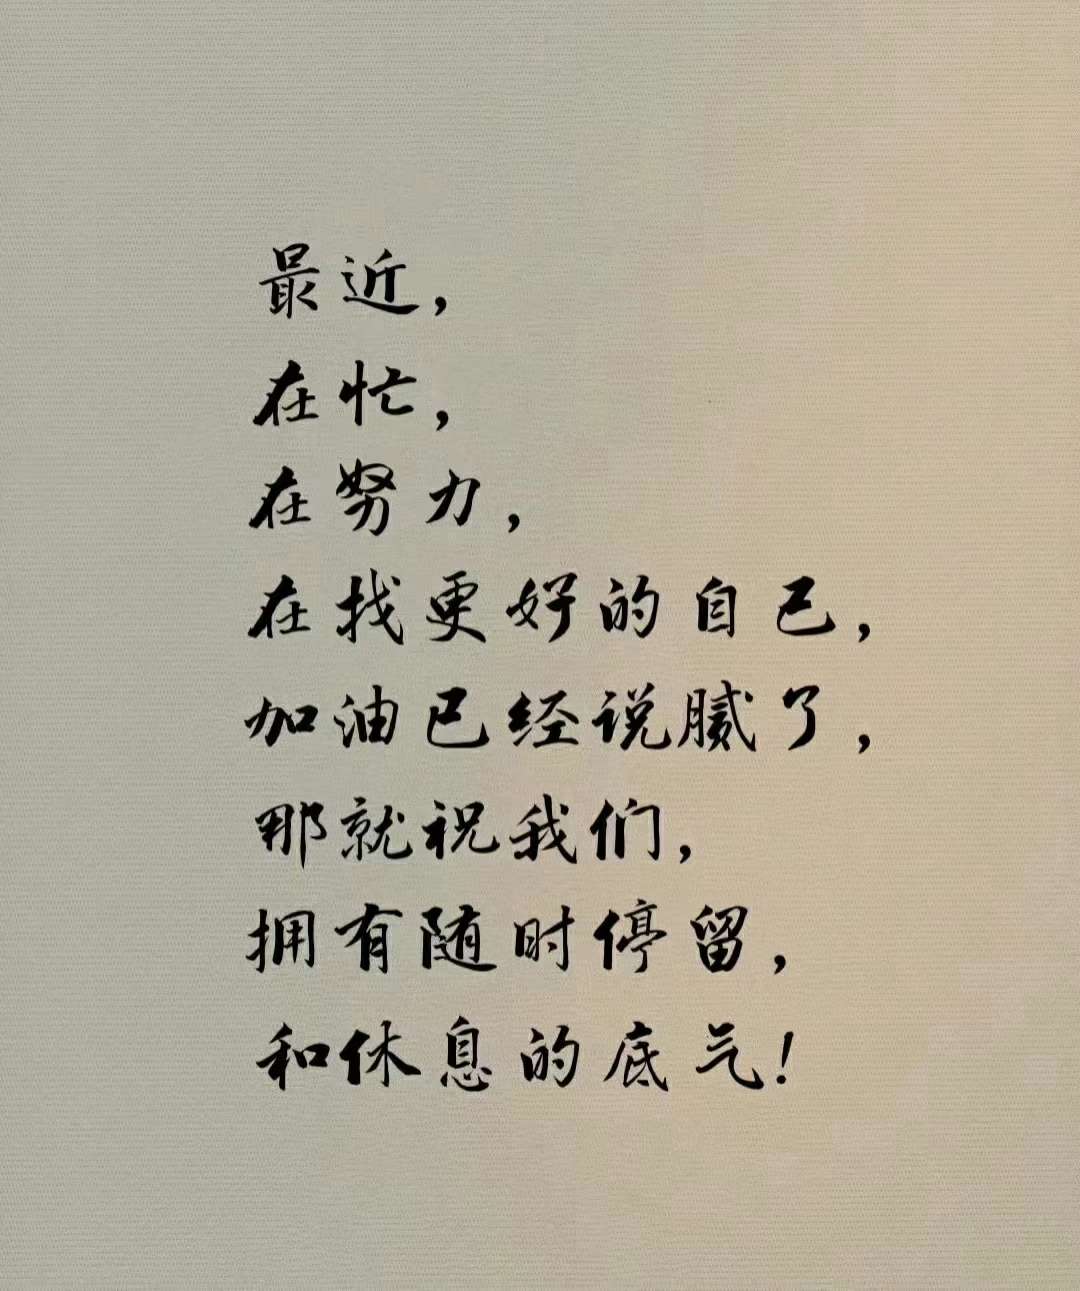 最近，
在忙，
在努力，
在找更好的自己，
加油已经说腻了，
那就祝我们，
拥有随时停留，
和休息的底气！